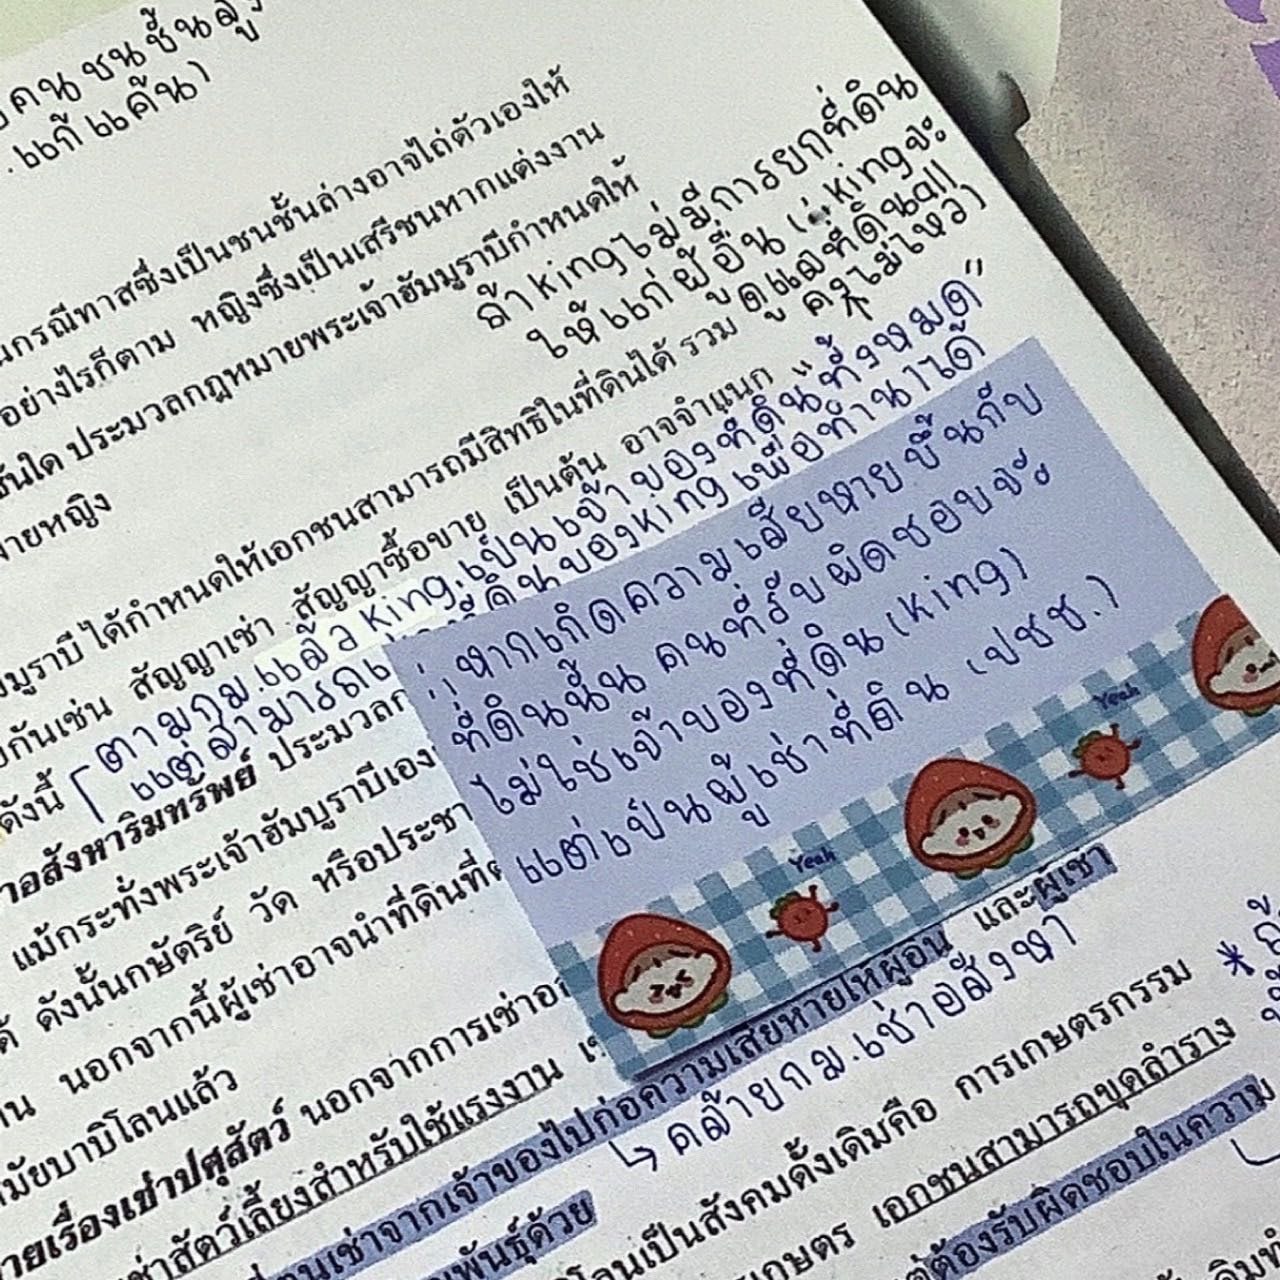 คน ชน ชั้น สูง
. แก้ แค้น)
นกรณีทาสซึ่งเป็นชนชั้นล่างอาจไถ่ตัวเองให้
อย่างไรก็ตาม หญิงซึ่งเป็นเสรีชนหากแต่งงาน
ชั้นใด ประมวลกฎหมายพระเจ้าฮัมมูราบีกำหนดให้
ายหญิง
ถ้า king ไม่มีการยกที่ดิน
ให้แก่ผู้อื่น (∵ king จะ
ดูแลที่ดิน all
คงไม่ไหว)
มมูราบี ได้กำหนดให้เอกชนสามารถมีสิทธิในที่ดินได้ รวม
ยกันเช่น สัญญาเช่า สัญญาซื้อขาย เป็นต้น อาจจำแนก
ดังนี้
ตามกม.แล้ว king เป็นเจ้าของที่ดิน "ทั้งหมด"
แต่สามารถเ ที่ดินของ king เพื่อทำนาได้
าอสังหาริมทรัพย์ ประมวลก
แม้กระทั่งพระเจ้าฮัมบูราบีเอง
ด้ ดังนั้นกษัตริย์ วัด หรือประชา
นอกจากนี้ผู้เช่าอาจนำที่ดินที่
มัยบาบิโลนแล้ว
หากเกิดความเสียหายขึ้นกับ
ที่ดินนั้น คนที่รับผิดชอบจะ
ไม่ใช่เจ้าของที่ดิน (king)
แต่เป็นผู้เช่าที่ดิน (ปชช.)
Yeah
Yeah
ายเรื่องเช่าปศุสัตว์ นอกจากการเช่าอ
ช่าสัตว์เลี้ยงสำหรับใช้แรงงาน เ
และผู้เช่า
านเช่าจากเจ้าของไปก่อความเสียหายให้ผู้อื่น
↳ คล้ายกม.เช่าอสังหา
พันธุ์ด้วย
โลนเป็นสังคมดั้งเดิมคือ การเกษตรกรรม
เกษตร เอกชนสามารถขุดลำราง
ต้องรับผิดชอบในความ